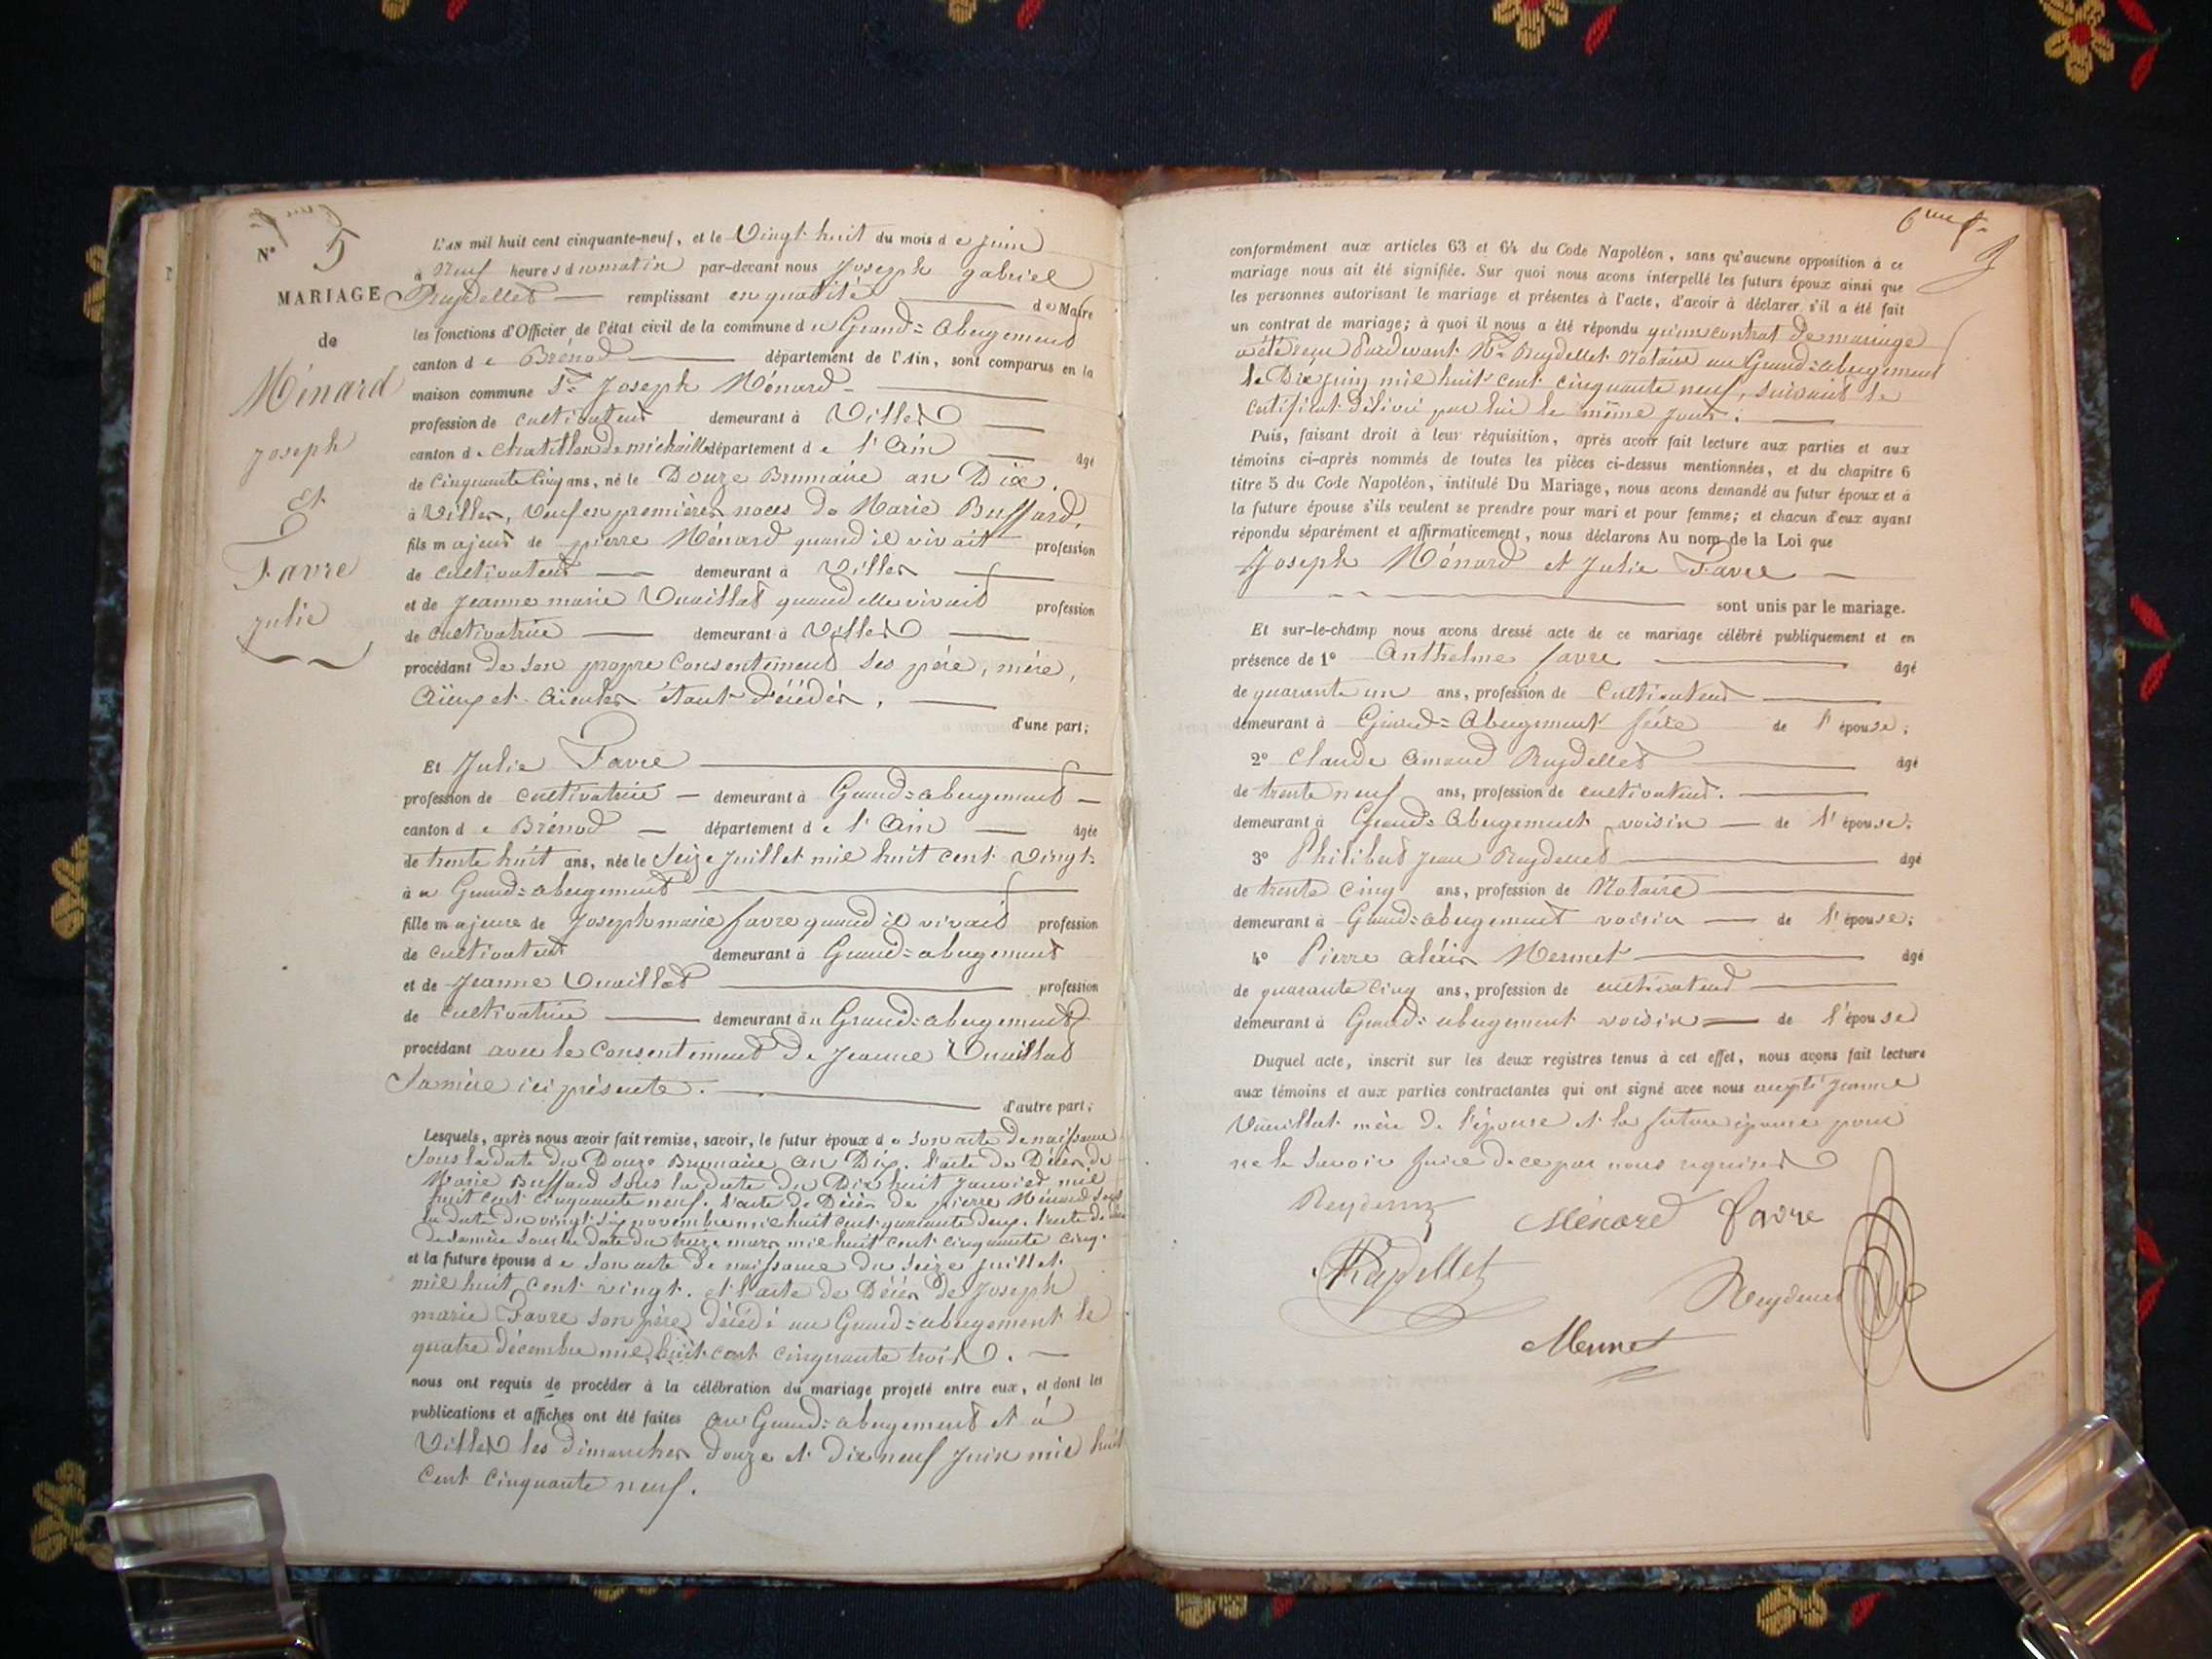 N° 5
MARIAGE
de
Ménard
Joseph
Et
Favre
Julie
L'AN mil huit cent cinquante-neuf, et le Vingt huit du mois de juin
à Neuf heures du matin par-devant nous Joseph gabriel
Reydellet remplissant en qualité de Maire
les fonctions d'Officier de l'état civil de la commune du Grand=Abergement
canton de Brénod département de l'Ain, sont comparus en la
maison commune Sr Joseph Ménard
profession de cultivateur demeurant à Villes
canton de Chatillon de michaille département de l'Ain âgé
de Cinquante Cinq ans, né le Douze Brumaire an Dix.
à Villes, Veuf en premières noces de Marie Buffard,
fils majeur de pierre Ménard quand il vivait profession
de cultivateur demeurant à Villes
et de Jeanne marie Vuaillat quand elle vivait profession
de cultivatrice demeurant à Villes
procédant de son propre Consentement ses père, mère,
aïeux et aïeules étant décédés,
d'une part;
Et Julie Favre
profession de cultivatrice demeurant à Grand=abergement
canton de Brénod département de l'Ain âgée
de trente huit ans, née le Seize Juillet mil huit cent vingt
à u Grand=abergement
fille majeure de Joseph marie favre quand il vivait profession
de cultivateur demeurant à Grand=abergement
et de Jeanne Vuaillat profession
de cultivatrice demeurant àu Grand=abergement
procédant avec le Consentement de Jeanne Vuaillat
Sa mère ici présente.
d'autre part;
Lesquels, après nous avoir fait remise, savoir, le futur époux de son acte de naissance
sous la date du Douze Brumaire an Dix. l'acte de Décès de
Marie Buffard sous la date du Dix huit Janvier mil
huit cent cinquante neuf. l'acte de Décès de pierre Ménard sous
la date du vingt six novembre mil huit cent quarante deux. l'acte de décès
de sa mère sous la date du treize mars mil huit cent cinquante cinq.
et la future épouse de son acte de naissance du seize juillet
mil huit cent vingt. et l'acte de Décès de Joseph
marie Favre son père décédé au Grand=abergement le
quatre décembre mil huit cent cinquante trois.
nous ont requis de procéder à la célébration du mariage projeté entre eux, et dont les
publications et affiches ont été faites au Grand=abergement et à
Villes les dimanches douze et dix neuf Juin mil huit
cent cinquante neuf.
conformément aux articles 63 et 64 du Code Napoléon, sans qu'aucune opposition à ce
mariage nous ait été signifiée. Sur quoi nous avons interpellé les futurs époux ainsi que
les personnes autorisant le mariage et présentes à l'acte, d'avoir à déclarer s'il a été fait
un contrat de mariage; à quoi il nous a été répondu qu'un contrat de mariage
a été reçu Pardevant Me Reydellet Notaire au Grand=abergement
le Dix Juin mil huit cent cinquante neuf, suivant le
Certificat délivré par lui le même jour.
Puis, faisant droit à leur réquisition, après avoir fait lecture aux parties et aux
témoins ci-après nommés de toutes les pièces ci-dessus mentionnées, et du chapitre 6
titre 5 du Code Napoléon, intitulé Du Mariage, nous avons demandé au futur époux et à
la future épouse s'ils veulent se prendre pour mari et pour femme; et chacun d'eux ayant
répondu séparément et affirmativement, nous déclarons Au nom de la Loi que
Joseph Ménard et Julie Favre
sont unis par le mariage.
Et sur-le-champ nous avons dressé acte de ce mariage célébré publiquement et en
présence de 1° Anthelme favre âgé
de quarante un ans, profession de Cultivateur
demeurant à Grand=Abergement frère de l'épouse;
2° Claude Amand Reydellet âgé
de trente neuf ans, profession de cultivateur.
demeurant à Grand=Abergement voisin de l'épouse;
3° Philibert Jean Reydellet âgé
de trente cinq ans, profession de Notaire
demeurant à Grand=abergement voisin de l'épouse;
4° Pierre aléxis Mermet âgé
de quarante cinq ans, profession de cultivateur
demeurant à Grand=abergement voisin de l'épouse
Duquel acte, inscrit sur les deux registres tenus à cet effet, nous avons fait lecture
aux témoins et aux parties contractantes qui ont signé avec nous excepté Jeanne
Vuaillat mère de l'épouse et la future épouse pour
ne le savoir faire de ce par nous requises
Ménard Favre
Reydellet
Mermet